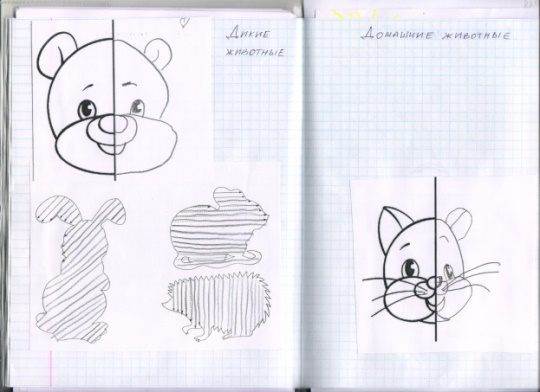 Дикие
животные
Домашние животные